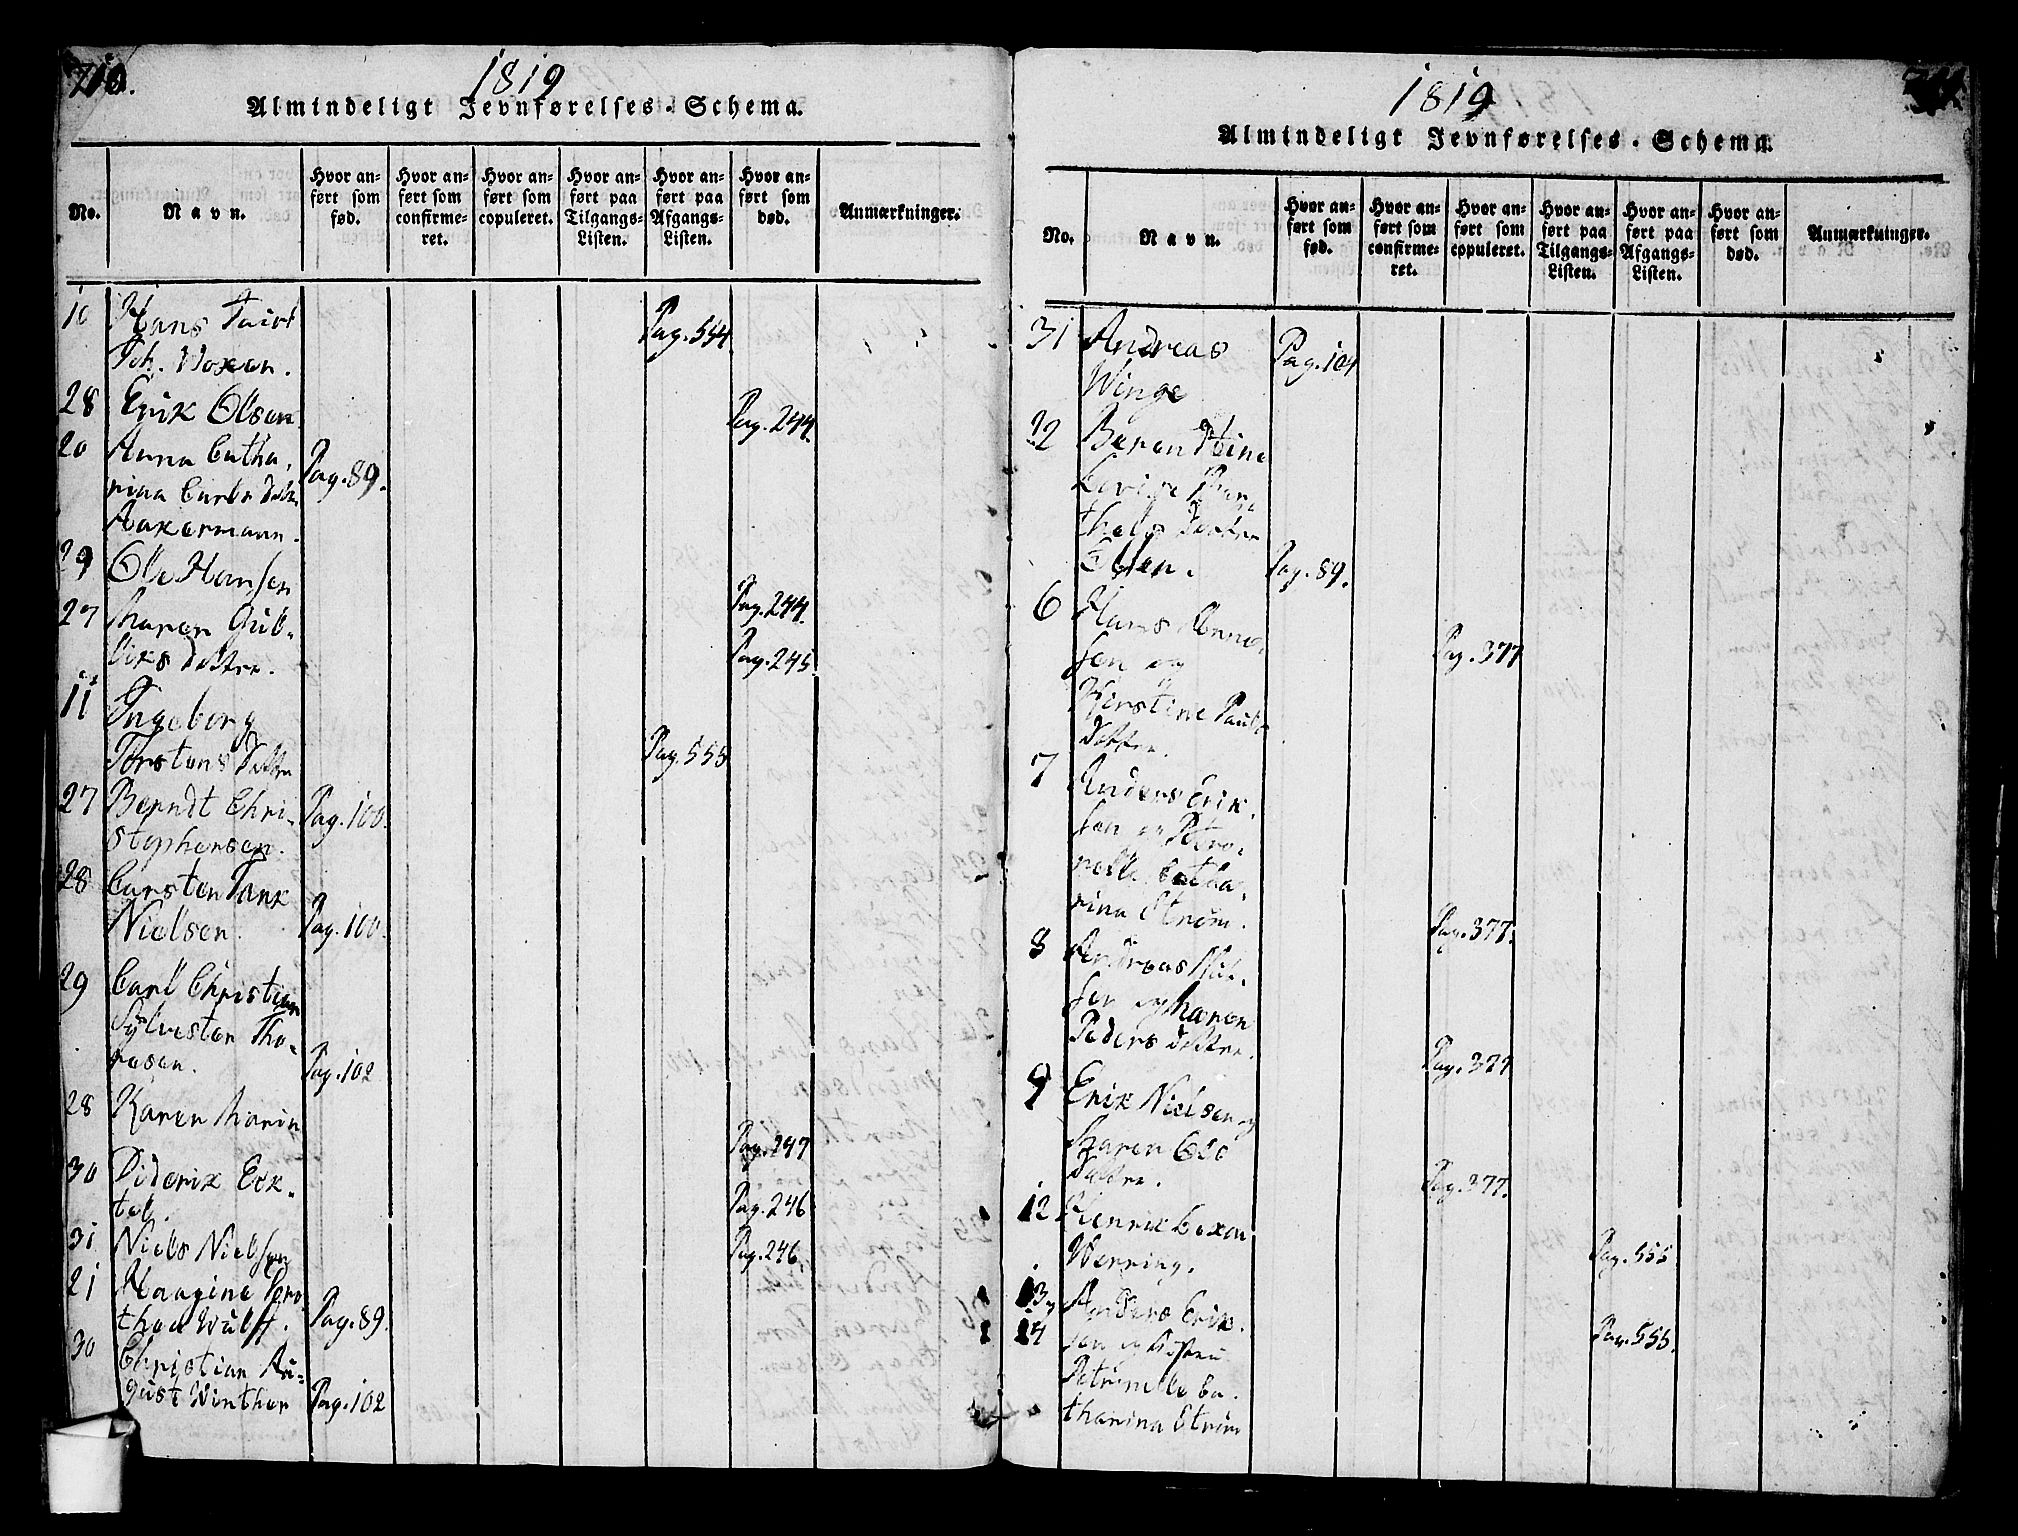 1819
Almindeligt Jevnførelses-Schema.
No. Navn. Hvor anført som fød. Hvor anført som confirmeret. Hvor anført som copuleret. Hvor anført paa Tilgangs-Listen. Hvor anført paa Afgangs-Listen. Hvor anført som død. Anmærkninger.
10 Hans
Joh. Pag. 554.
28 Erik Olsen Pag. 244.
20 Anna Catha-
rina Carls Datter Pag. 89.
Aakermann.
29 Ole Hansen Pag. 244.
27 Maren Gul-
liks Datter. Pag. 245.
11 Ingeborg
Torstens Datter Pag. 555
27 Berndt Chri-
stophersen. Pag. 100.
28 Carsten Tank
Nielsen. Pag. 100.
29 Carl Christian
Sylvester Tho-
resen. Pag. 102
28 Karen Marin Pag. 247
30 Diderik Eck-
tel. Pag. 246
31 Niels Nielsen Pag. 246
21 Haagine Doro-
thea Wulff. Pag. 89.
30 Christian Au-
gust Winther Pag. 102
1819
Almindeligt Jevnførelses-Schema.
No. Navn. Hvor anført som fød. Hvor anført som confirmeret. Hvor anført som copuleret. Hvor anført paa Tilgangs-Listen. Hvor anført paa Afgangs-Listen. Hvor anført som død. Anmærkninger.
31 Andreas Pag. 104
Winge
22 Berendtine
thels Datter
Pag. 89.
6 Hans
sen og Pag. 377
Kjerstine Pauls
Datter.
7 Anders Erik-
sen og Petro-
nelle Catha-
rina Strøm. Pag. 377.
8 Andreas Niel-
sen og Maren
Peders Datter. Pag. 377
9 Erik Nielsen og
Karen Ols
Datter. Pag. 377.
12 Henrik
Werring. Pag. 555
13 Anders Erik-
14 sen og Hustru Pag. 555.
Petronelle Ca-
tharina Strøm